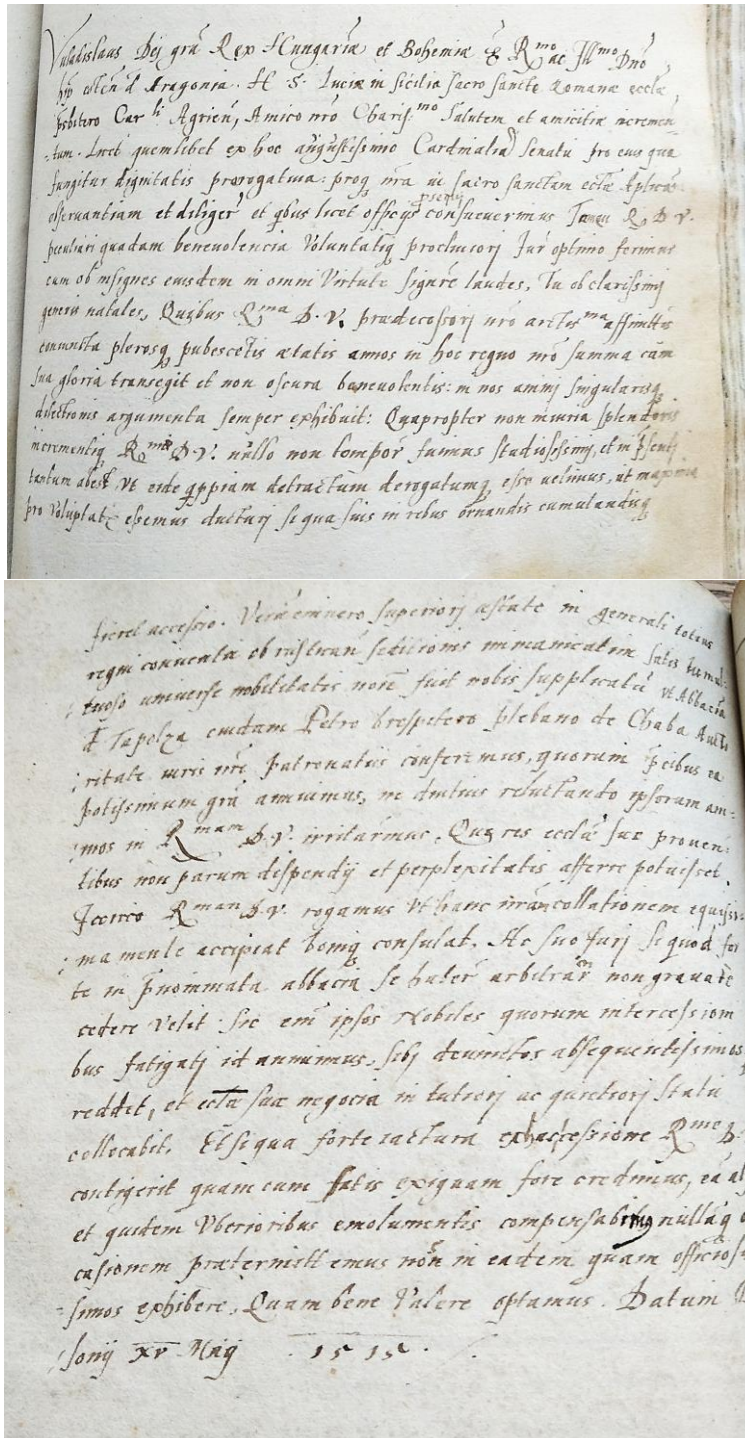 Vuladislaus, Dej grã Rex Hungariæ et Bohemiæ & Rmo ac Illmo Dnõ
d Aragonia. S. Luciæ in Sicilia sacro sancte Romanæ ecclæ
psbitero Car li Agrien, Amico nrõ Charis mo Salutem et amicitiæ incremen
tum. Licet quemlibet ex hoc augustissimo Cardinaliũ Senatu pro eius qua
fungitur dignitatis prærogatiua: proq nrã in sacro sanctam ectæ Aplicæ
obseruantiam et diliger et qbus licet officijs prsequj consueuermus Tamen R. D. V.
peculiari quadam beneuolencia Voluntatiq procliuiorj Jur optimo ferimus
cum ob insignes eiusdem in omni Virtute laudes, Tu ob clarissimj
generis natales, Quibus R ma D. V. prædecessorj nrõ arctis ma affinittis
coniuncta plerosq pubescetis ætatis annos in hoc regno nrõ summa cum
sua gloria transegit et non oscura beneuolentiæ in nos animj singularisq
dilectionis argumenta semper exhibuit: Quapropter non iniuria splendoris
incrementiq R mæ D. V. nullo non tempor fuimus studiosissimj, et in psentj
tantum abest Vt eide qppiam detractum derogatumq esse uelimus, ut maxima
pro Voluptate essemus ducturj si qua suis in rebus ornandis cumulandisq
fieret accessio. Verũ superiorj æstate in generali totius
regni conuentu ob rusticanæ seditionis immanitatem satis tumul-
tuoso uniuerse nobilitatis nom̃ fuit nobis supplicatũ vt Abbaciã
d Tapolza cuidam Petro plebano de Chaba Aucto
ritate iuris nrĩ patronatus conferemus, quorum pcibus ea
potissimum grã annuimus, ne diutius reluctando ipsorum ani=
mos in R mam D. V. irritarmus. Quæ res ecclæ suæ prouen=
tibus non parum dispendij et perplexitatis afferre potuisset.
Iccirco R man D. V. rogamus Vt hanc nrãm collationem equissi=
ma mente accipiat boniq consulat, Ac suo Jurj si quod for
te in pnominata abbacia se haber arbitrar non grauate
cedere Velit. Sic em̃ ipsos Nobiles quorum intercession
bus fatigatj id annuimus, sibj deuinctos obsequentissimos
reddet, et ectæ suæ negocia in tutiorj ac quietiorj statu
collocabit. Et si qua forte iactura ex hac cessione R me D.
contigerit quam eum satis exiguam fore credimus, eã al
et quidem Vberioribus emolumentis compensabimus nullãq o
casionem prætermittemus nõn in eadem quam officios
simos exhibere. Quam bene Valere optamus. Datum
sonij xv Maij 1515.